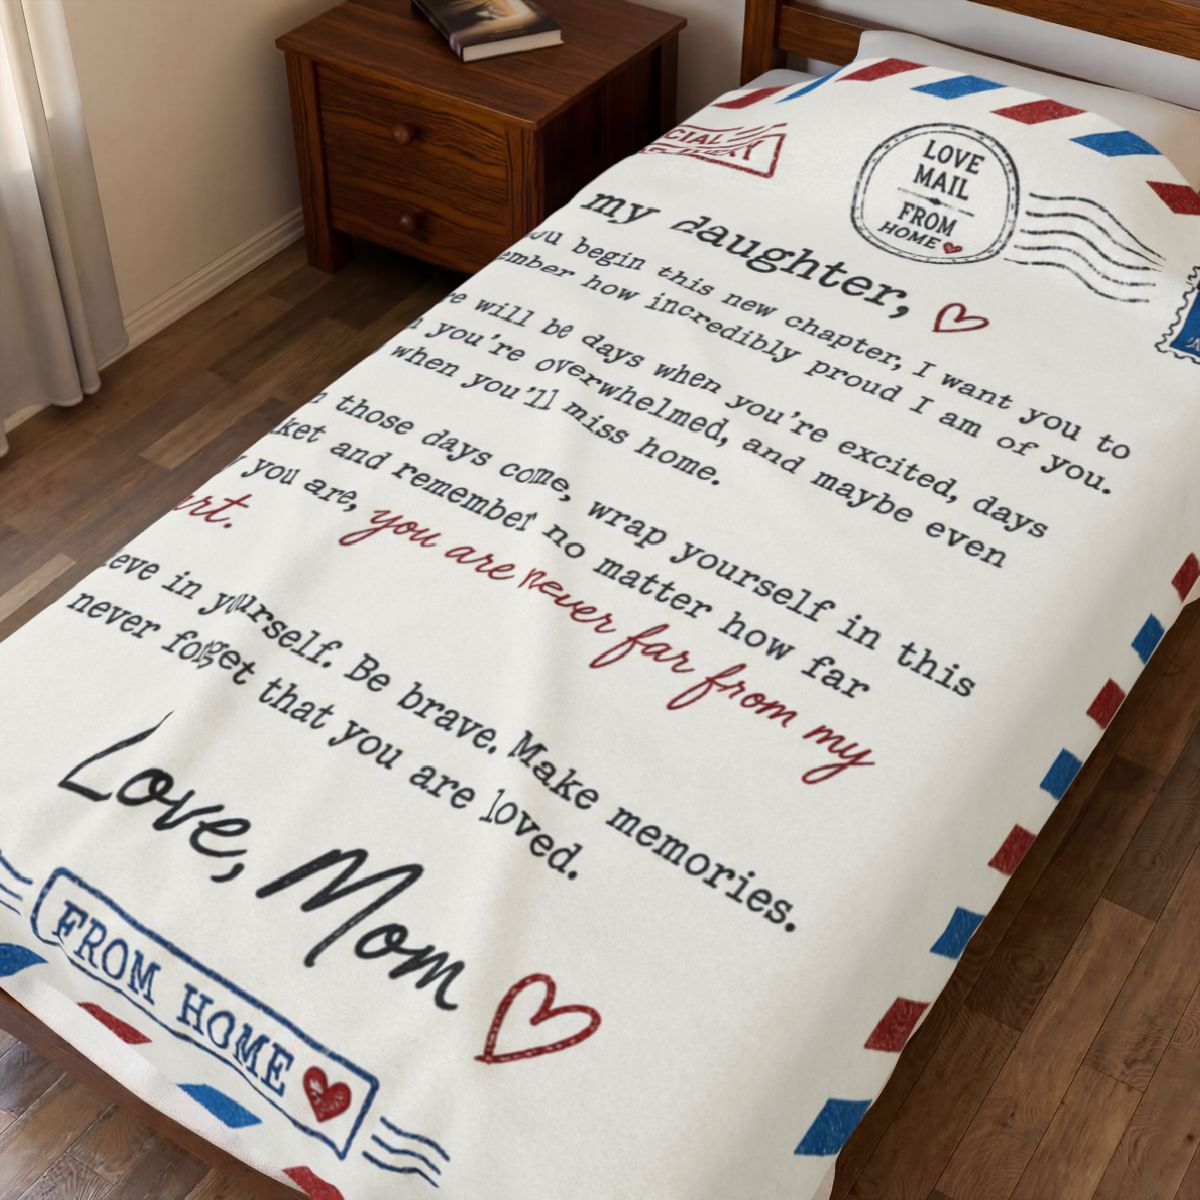 LOVE
MAIL
FROM
HOME
my daughter,
begin this new chapter, I want you to
how incredibly proud I am of you.
will be days when you're excited, days
you're overwhelmed, and maybe even
when you'll miss home.
those days come, wrap yourself in this
and remember no matter how far
you are, you are never far from my
in yourself. Be brave. Make memories.
never forget that you are loved.
Love, Mom
FROM HOME